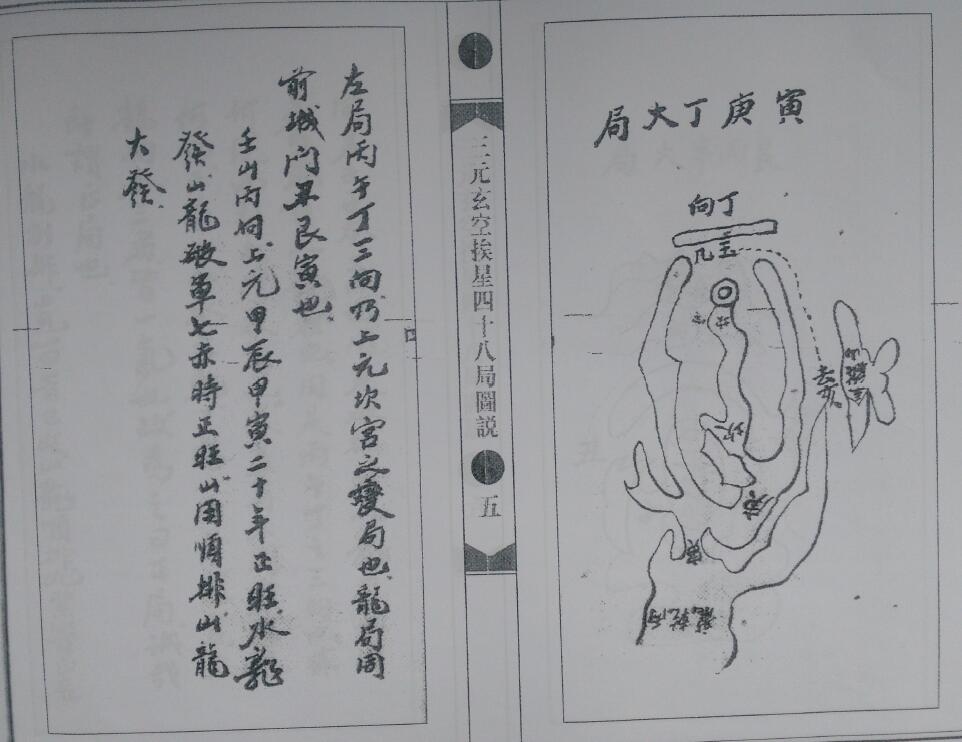 寅庚丁大局
丁向
玉几
坎
庚
寅
三元玄空挨星四十八局圖説
五
左局丙午丁三向乃上元坎宮之變局也龍局同
前城门果艮寅也
壬山丙向上元甲辰甲寅二十年正旺水龍
發山龍破軍七赤時正旺山用順排山龍
大發